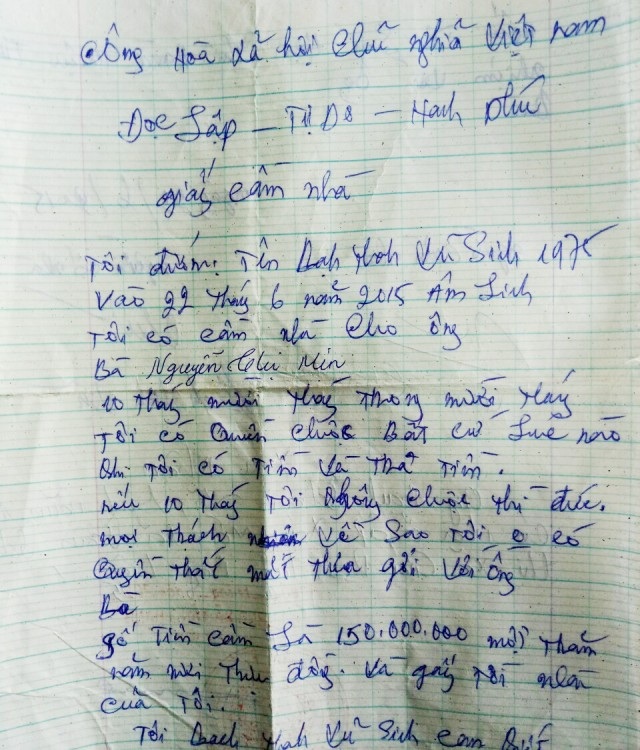 Công Hoà Xã hội Chủ nghĩa Việt nam
Đọc Lập – Tự Do – Hanh Phúc
giấy cầm nhà
Tôi đứng Tên Bạch Vũ Sinh 1975
Vào 22 Tháy 6 năm 2015 Âm Lich
Tôi có cầm nhà Cho ông
Bà Nguyễn Thị Min
10 tháy mười tháy Trong mười tháy
Tôi có Quền chuộc Bất cứ Lúc nào
khi Tôi có Tiền và Thả Tiền.
nếu 10 Tháy Tôi không chuộc thì đức.
mọi Thách về Sao Tôi 0 có
Quyền Thắt mắt Thưa gởi Với Ông
Bà
số Tiền cầm Là 150.000.000 một Trăm
năm mươi Triệu đồng. Và giấy Tờ nhà
của Tôi.
Tôi Bạch Vũ Sinh cam